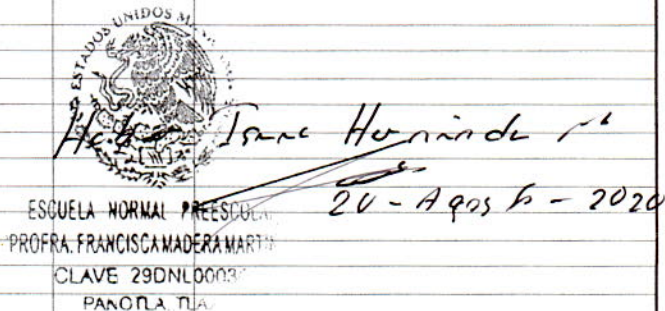 ESTADOS UNIDOS M
Isaac Hernánde
20 - Agosto - 2020
ESCUELA NORMAL PREESCOLA
PROFRA. FRANCISCA MADERA MARTÍ
CLAVE 29DNL0003
PANOTLA, TLA